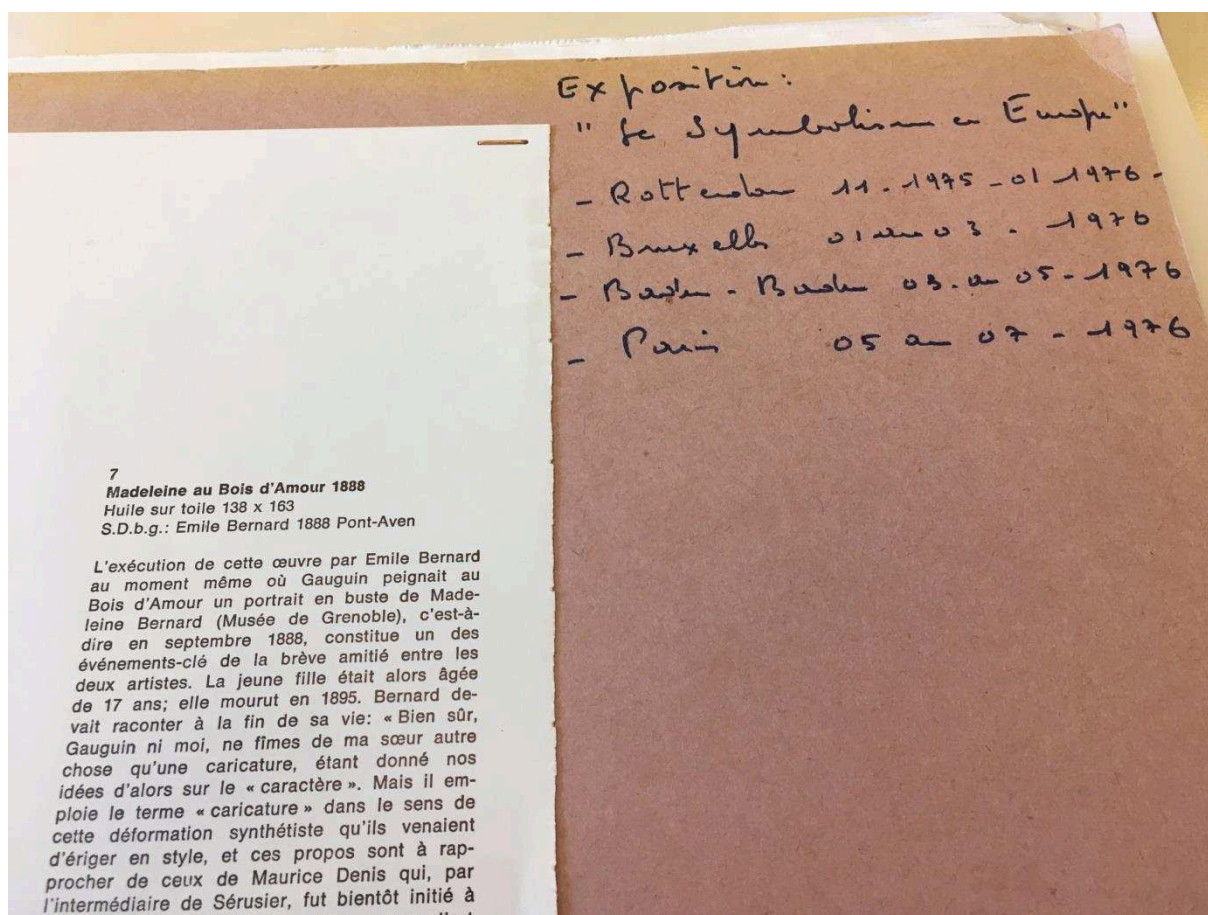 Exposition :
"Le Symbolisme en Europe"
- Rotterdam 11.-1975-01 1976-
- Bruxelles 01 au 03 . 1976
- Baden-Baden 03. au 05-1976
- Paris 05 au 07 - 1976
7
Madeleine au Bois d'Amour 1888
Huile sur toile 138 x 163
S.D.b.g.: Emile Bernard 1888 Pont-Aven
L'exécution de cette œuvre par Emile Bernard
au moment même où Gauguin peignait au
Bois d'Amour un portrait en buste de Made-
leine Bernard (Musée de Grenoble), c'est-à-
dire en septembre 1888, constitue un des
événements-clé de la brève amitié entre les
deux artistes. La jeune fille était alors âgée
de 17 ans; elle mourut en 1895. Bernard de-
vait raconter à la fin de sa vie: « Bien sûr,
Gauguin ni moi, ne fîmes de ma sœur autre
chose qu'une caricature, étant donné nos
idées d'alors sur le « caractère ». Mais il em-
ploie le terme « caricature » dans le sens de
cette déformation synthétiste qu'ils venaient
d'ériger en style, et ces propos sont à rap-
procher de ceux de Maurice Denis qui, par
l'intermédiaire de Sérusier, fut bientôt initié à